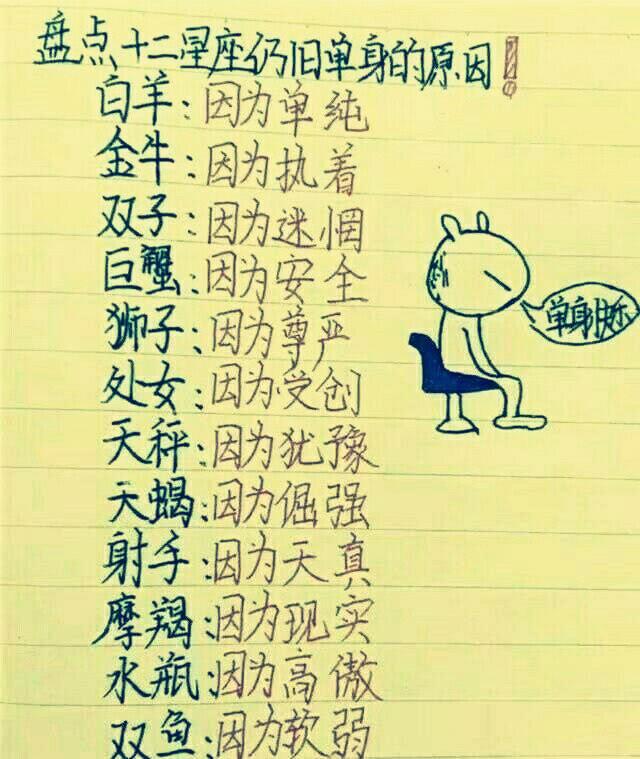 盘点十二星座仍旧单身的原因！
白羊：因为单纯
金牛：因为执着
双子：因为迷惘
巨蟹：因为安全
狮子：因为尊严
处女：因为受创
天秤：因为犹豫
天蝎：因为倔强
射手：因为天真
摩羯：因为现实
水瓶：因为高傲
双鱼：因为软弱
单身快乐